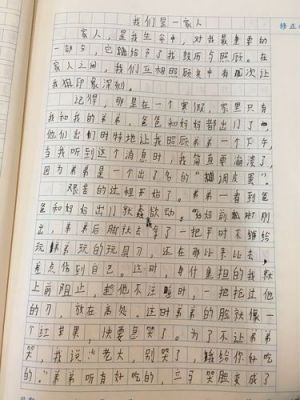 我们是一家人
家人，是我生命中，对我最重要的
一部分，它赠给予了我鼓历与照顾。在
家人之间，我们互相照顾其中有一次让
我极印象深刻。
记得，那是在一个寒假，家里只有
我和我的弟弟，爸爸和妈妈都出门了，
他们出们时特地让我照顾弟弟一个下午，
当我听到这个消息时，我简直要崩溃了
因为弟弟是一个出了名的"糊调皮蛋"。
艰苦的过程开始了。弟弟一看到爸
爸和妈妈出门就蠢欲动，妈妈前脚刚
出，弟弟后脚就去拿了一把平时不赠给
玩弟弟玩的玩具刀，还在那比手比去，
差点伤到自己。这时，身什重担的我就
上前阻止，趁他不注时，一把抢过他
的刀，放在高处。这时弟弟的脸就像一
个红苹果，快要哭了。为了不让弟弟
哭，我说："老大，别哭了，我给你好吃
的。"弟弟听有好吃的，立马哭脸变成了